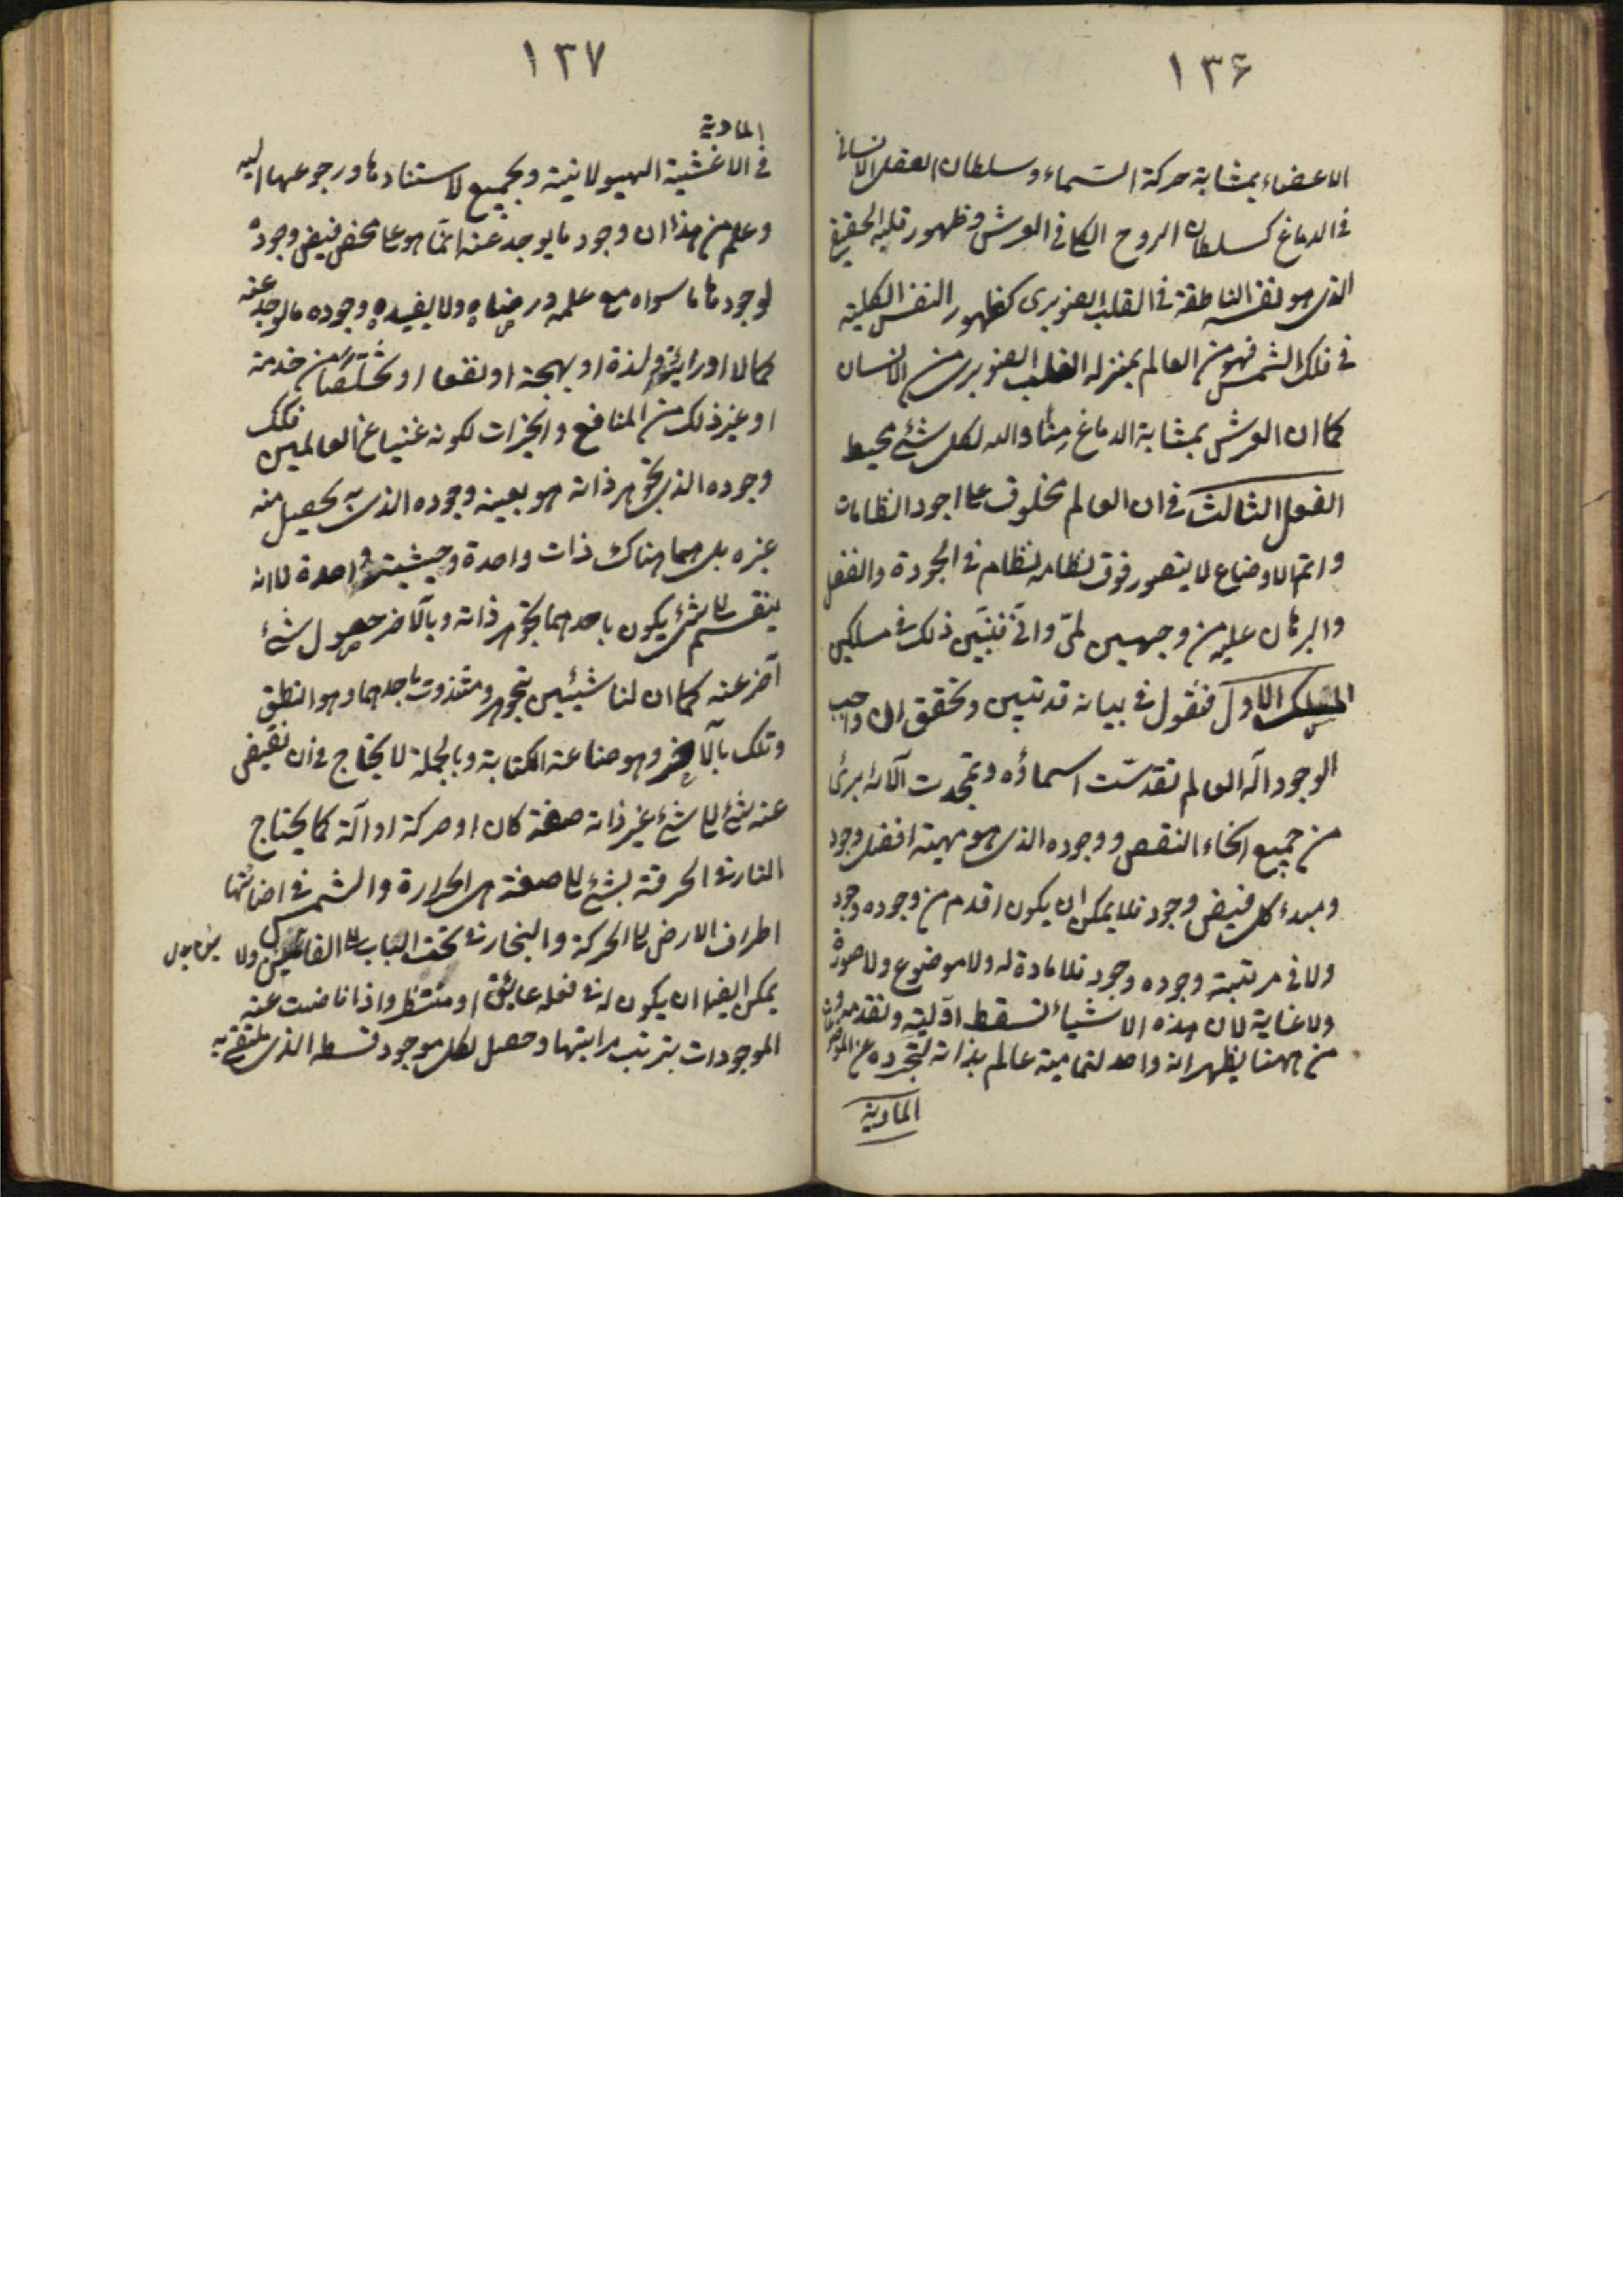 ١٣۶
الاعضاء بمثابة حركة السّماء و سلطان العقل الانسانى
فى الدماغ كسلطان الروح الكلى فى العرش و ظهور قلبه الحقيقى
الذى هو نفسه الناطقة فى القلب الصنوبرى كظهور النفس الكلية
فى فلك الشمس فهو من العالم بمنزله القلب الصنوبرى من الانسان
كما ان العرش بمثابة الدماغ منّا والله لكل شئ محيط
الفصل الثالث فى ان العالم مخلوق على اجود النظامات
و اتم الاوضاع لا يتصور فوق نظامه نظام فى الجودة والفضل
والبرهان عليه من وجهين لمّى وانّى فنبيّن ذلك فى مسلكين
المسلك الاول فنقول فى بيانه قد تبين و تحقق ان واجب
الوجود اله العالم تقدسّت اسماؤه و تمجدت آلائه برئ
من جميع انحاء النقص و وجوده الذى هو مهيته افضل وجود
و مبدء كل فيض وجود فلا يمكن ان يكون اقدم من وجوده وجود
ولا فى مرتبة وجوده وجود فلا مادة له ولا موضوع ولا صورة
ولا غاية لان هذه الاشياء تسقط اوّليته و تقدمه و
من ههنا يظهر انه واحد لتماميته عالم بذاته لتجرده عن
المادية
١٣٧
المادية
فى الاغشية الهيولانية وبجميع لاستنادها ورجوعها اليه
وعلم من هذا ان وجود ما يوجد عنه انّما هو على محض فيض وجوده
لوجودها ما سواه مع علمه و رضاه ولا يفيده وجوده ما يوجد عنه
كمالا او لذة او بهجة او نفعا او تخلّصا من خدمة
او غير ذلك من المنافع والخيرات لكونه غنيا عن العالمين فلك
وجوده الذى تجوهر ذاته هو بعينه وجوده الذى به يحصل منه
غيره بل هما هناك ذات واحدة وحيثيته واحدة لا انه
ينقسم لا شئ يكون باحدهما تجوهر ذاته وبالآخر حصول شئ
آخر عنه كما ان لنا شيئين نتجوهر و متذوت باحدهما وهو النطق
وتلك بالآخر وهو صناعة الكتابة وبالجملة لا يحتاج فى ان يفيض
عنه شئ الى شئ غير ذاته صفة كان او حركة او آلة كما يحتاج
النار فى الحرقة بشئ الى صفة هى الحرارة والشمس فى اضائتها
اطراف الارض الى الحركة والنجار فى نحت الباب الى الفاس ولا
يمكن ايضا ان يكون له فى فعله عايق او منتظر واذا فاضت عنه
الموجودات بترتب مراتبها وحصل لكل موجود قسطه الذى يليق به